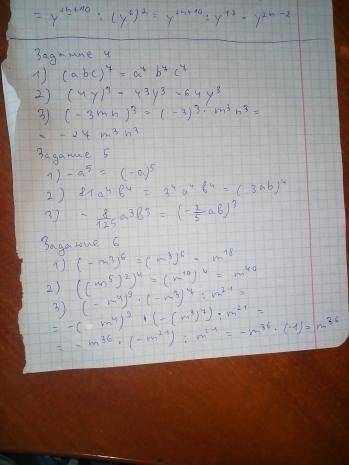 = y²ⁿ⁺¹⁰ : (y⁶)² = y²ⁿ⁺¹⁰ : y¹² = y²ⁿ⁻²
Задание 4
1) (abc)⁷ = a⁷ b⁷ c⁷
2) (4y)³ = 4³y³ = 64y³
3) (-3mn)³ = (-3)³ · m³ n³ =
= -27 m³ n³
Задание 5
1) -a⁵ = (-a)⁵
2) 81a⁴b⁴ = 3⁴a⁴b⁴ = (3ab)⁴
3) - 8/125 a³b³ = (-2/5 ab)³
Задание 6
1) (-m³)⁶ = (m³)⁶ = m¹⁸
2) ((m⁵)²)⁴ = (m¹⁰)⁴ = m⁴⁰
3) (-m⁴)⁹ · (-m³)⁷ : m²¹ =
= -(m⁴)⁹ · (-(m³)⁷) : m²¹ =
= -m³⁶ · (-m²¹) : m²¹ = -m³⁶ · (-1) = m³⁶